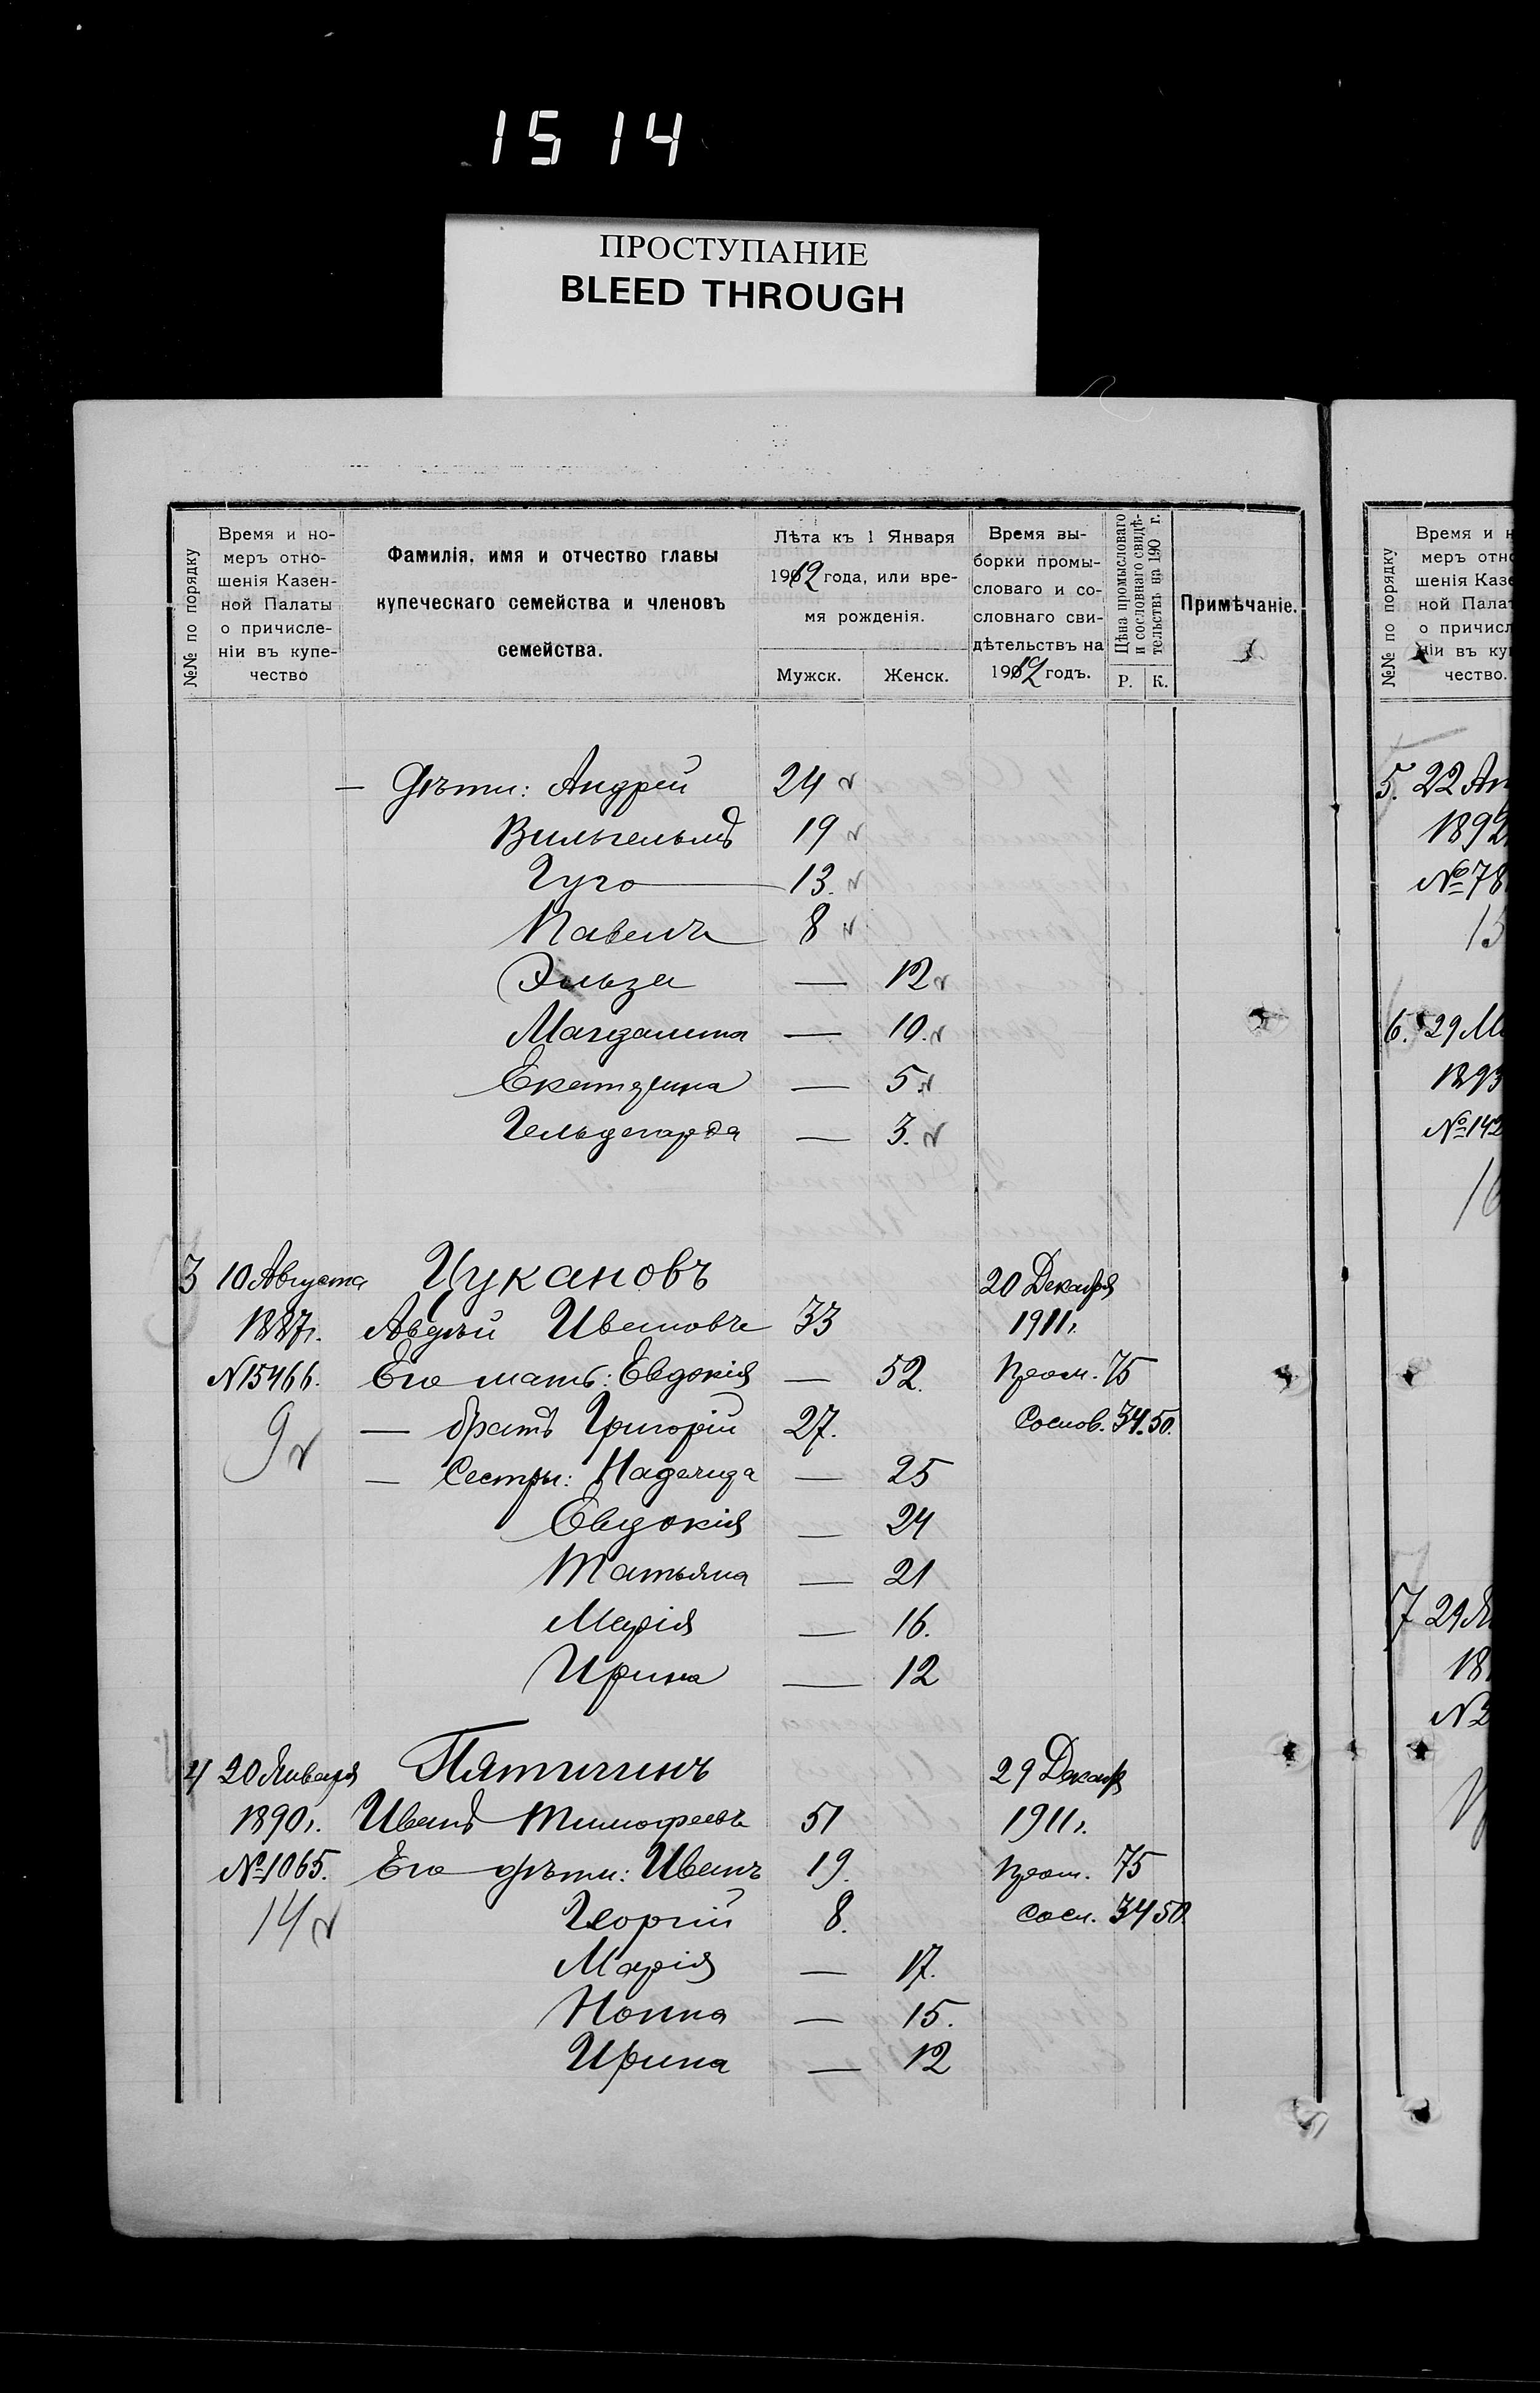 1514
ПРОСТУПАНИЕ
BLEED THROUGH
№№ по порядку
Время и но-
меръ отно-
шенія Казен-
ной Палаты
о причисле-
ніи въ купе-
чество
Фамилія, имя и отчество главы
купеческаго семейства и членовъ
семейства.
Лѣта къ 1 Января
1912 года, или вре-
мя рожденія.
Мужск. Женск.
Время вы-
борки промы-
словаго и со-
словнаго сви-
дѣтельствъ на
1912 годъ.
Цѣна промысловаго
и сословнаго свидѣ-
тельствъ на 190 г.
Р. К.
Примѣчаніе.
— Дѣти: Андрей 24
Вильгельмъ 19
Гуго 13.
Павелъ 8
Эльза — 12
Магдалина — 10.
Екатерина — 5.
Гельдегарда — 3.
3 10 Августа Цукановъ 20 Декабря
1887г. Авдѣй Ивановъ 33 1911г.
N15466. Его мать: Евдокія — 52. Пром. 75
9 — братъ Григорій 27. Сослов. 34.50.
— Сестры: Надежда — 25
Евдокія — 24
Татьяна — 21
Марія — 16.
Ирина — 12
4 20 Января Пятигинъ 29 Декабр
1890г. Иванъ Тимофеевъ 51 1911г.
№1065. Его дѣти: Иванъ 19. Пром. 75
14 Георгій 8. Сосл. 34 50
Марія — 17.
Нонна — 15.
Ирина — 12
№№ по порядку
Время и н
меръ отно
шенія Казе
ной Палат
о причисл
ніи въ ку
чество.
5. 22 Ап
1892
№78
15
6. 29 М
1893
№142
16
7 29
18
N2